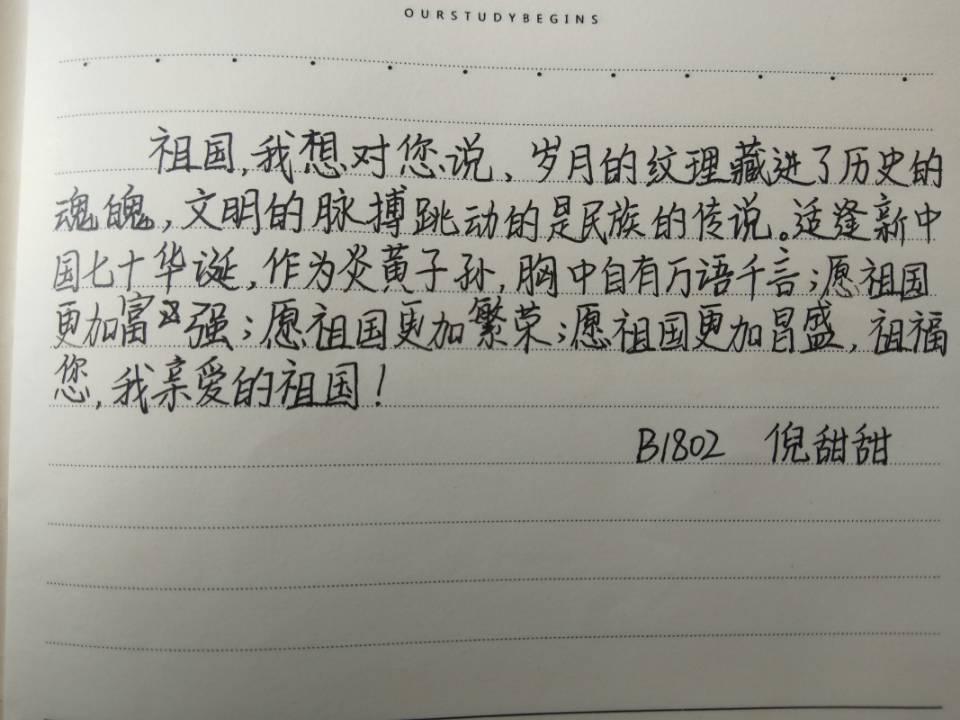 OURSTUDYBEGINS
祖国,我想对您说、岁月的纹理藏进了历史的
魂魄,文明的脉搏跳动的是民族的传说。适逢新中
国七十华诞,作为炎黄子孙,胸中自有万语千言;愿祖国
更加富强;愿祖国更加繁荣;愿祖国更加昌盛,祖福
您,我亲爱的祖国!
B1802 倪甜甜